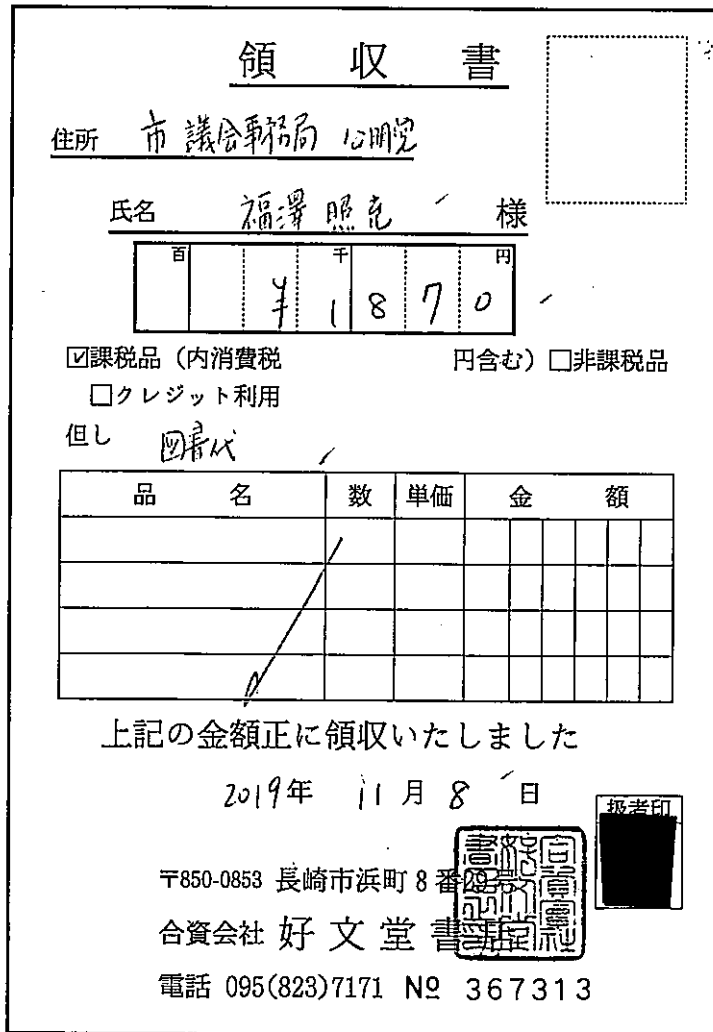 領収書
住所 市議会事務局 公明党
氏名 福澤照充 様
百 千 円
¥1870
☑課税品（内消費税 円含む）□非課税品
□クレジット利用
但し 図書代
品名 数 単価 金額
上記の金額正に領収いたしました
2019年 11月 8日
扱者印
〒850-0853 長崎市浜町8番29号
合資会社 好文堂書店
電話 095(823)7171 № 367313